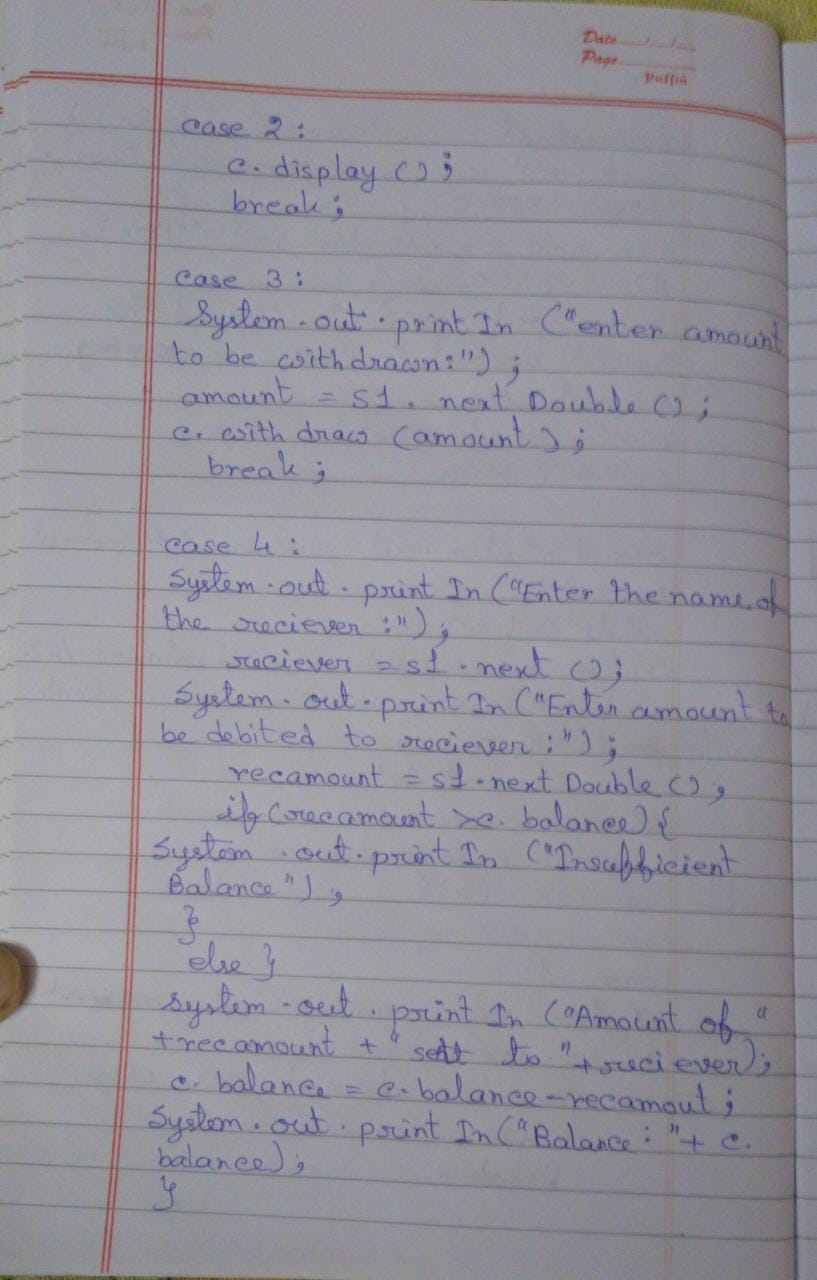 Date___/___/___
Page___
Puffin
case 2 :
c. display ();
break ;
case 3 :
System . out . print In ("enter amount
to be withdrawn:") ;
amount = s1 . next Double () ;
c. with draw (amount ) ;
break ;
case 4 :
System . out . print In ("Enter the name of
the reciever :") ;
reciever = s1 . next () ;
System . out . print In ("Enter amount to
be debited to reciever :") ;
recamount = s1 . next Double () ;
if (recamount >c. balance) {
System . out . print In ("Insufficient
Balance") ;
}
else }
System . out . print In ("Amount of "
+recamount + " sent to "+reciever);
c. balance = c. balance-recamout ;
System . out . print In ("Balance : "+ c.
balance) ;
}